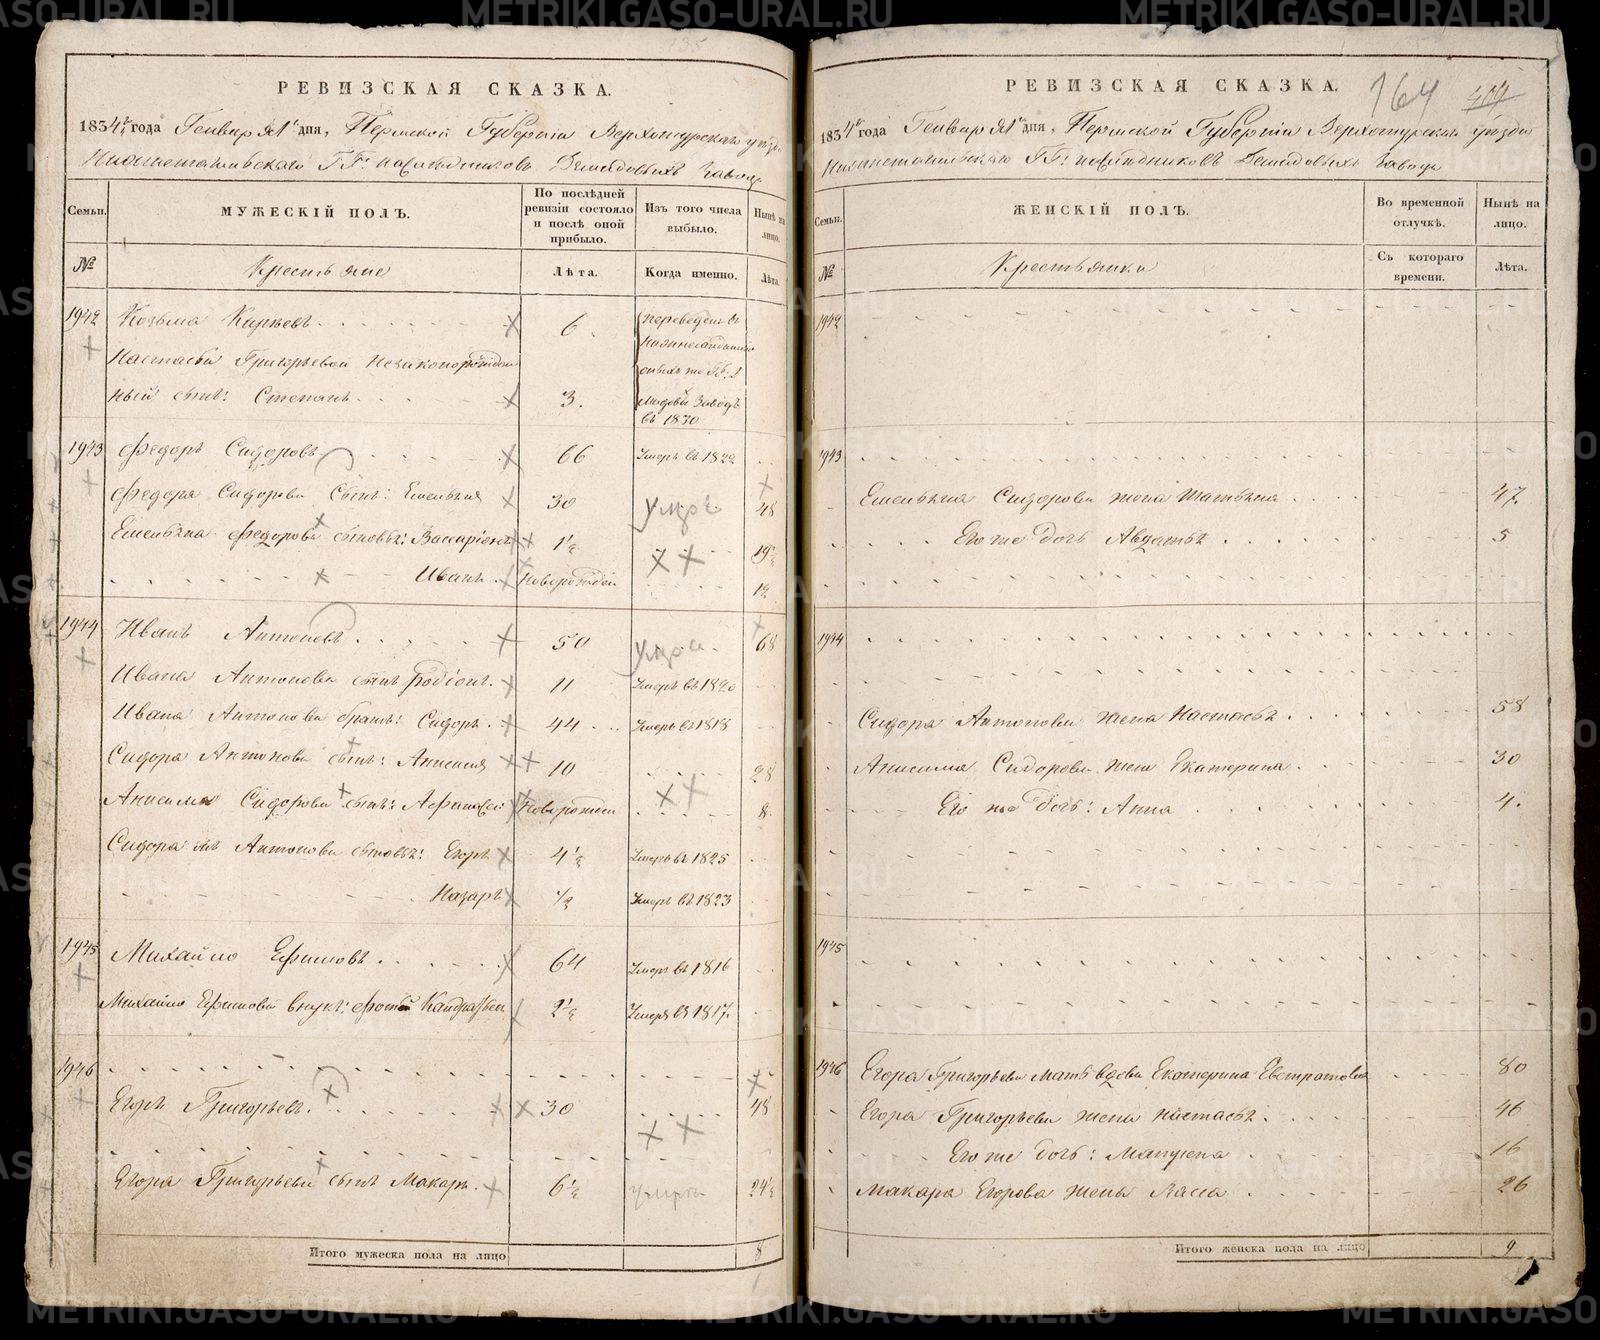 РЕВИЗСКАЯ СКАЗКА.
1834го года Генваря 1го дня, Пермской Губернiи Верхотурскаго уѣзда
Нижнетагильскаго ГГ: наслѣдниковъ Демидовыхъ завода
Семьи.
МУЖЕСКІЙ ПОЛЪ.
По послѣдней ревизіи состояло и послѣ оной прибыло.
Изъ того числа выбыло.
Нынѣ на лицо.
№
Крестьяне
Лѣта.
Когда именно.
Лѣта.
1942
Козьма 6
Переведенъ въ
Настасьи Григорьевой незаконорожден
ный сынъ: Степанъ 3.
Заводъ
въ 1830
1943 Федоръ Сидоровъ 66 Умеръ въ 1822
Федора Сидорова сынъ: Емельянъ 30 умръ 48
Емельяна Федорова сыновья: 1½ 19½
Иванъ Новорожден 12
1944 Иванъ Антоновъ 50 68
Ивана Антонова сынъ Родіонъ 11 Умеръ въ 1820
Ивана Антонова братъ: Сидоръ 44 Умеръ въ 1818
Сидора Антонова сынъ: Анисимъ 10 28
Анисима Сидорова сынъ: Афанасей Новорожден 8
Сидора Антонова сыновья: Егоръ 4½ Умеръ въ 1825
Назаръ ½ Умеръ въ 1823
1945 Михайло Ефимовъ 64 Умеръ въ 1816
Михайло Ефимова внукъ: 2½ Умеръ въ 1817
1946
Егоръ Григорьевъ 30 48
Егора Григорьева сынъ Макаръ 6½ умръ 24½
Итого мужеска пола на лицо 8
РЕВИЗСКАЯ СКАЗКА.
164
1834го года Генваря 1го дня, Пермской Губернiи Верхотурскаго уѣзда
Нижнетагильскаго ГГ: наслѣдниковъ Демидовыхъ завода
Семьи.
ЖЕНСКІЙ ПОЛЪ.
Во временной отлучкѣ.
Нынѣ на лицо.
№
Крестьянки
Съ котораго времени.
Лѣта.
1942
1943
Емельяна Сидорова жена Татьяна 47.
Его же дочь Авдотья 5
1944
Сидора Антонова жена Настасья 58
Анисима Сидорова жена Екатерина 30
Его же дочь: Анна 4.
1945
1946 Егора Григорьева мать вдова Екатерина Евстратова 80
Егора Григорьева жена Настасья 46
Его же дочь: 16
Макара Егорова жена Васса 26
Итого женска пола на лицо 9
METRIKI.GASO-URAL.RU